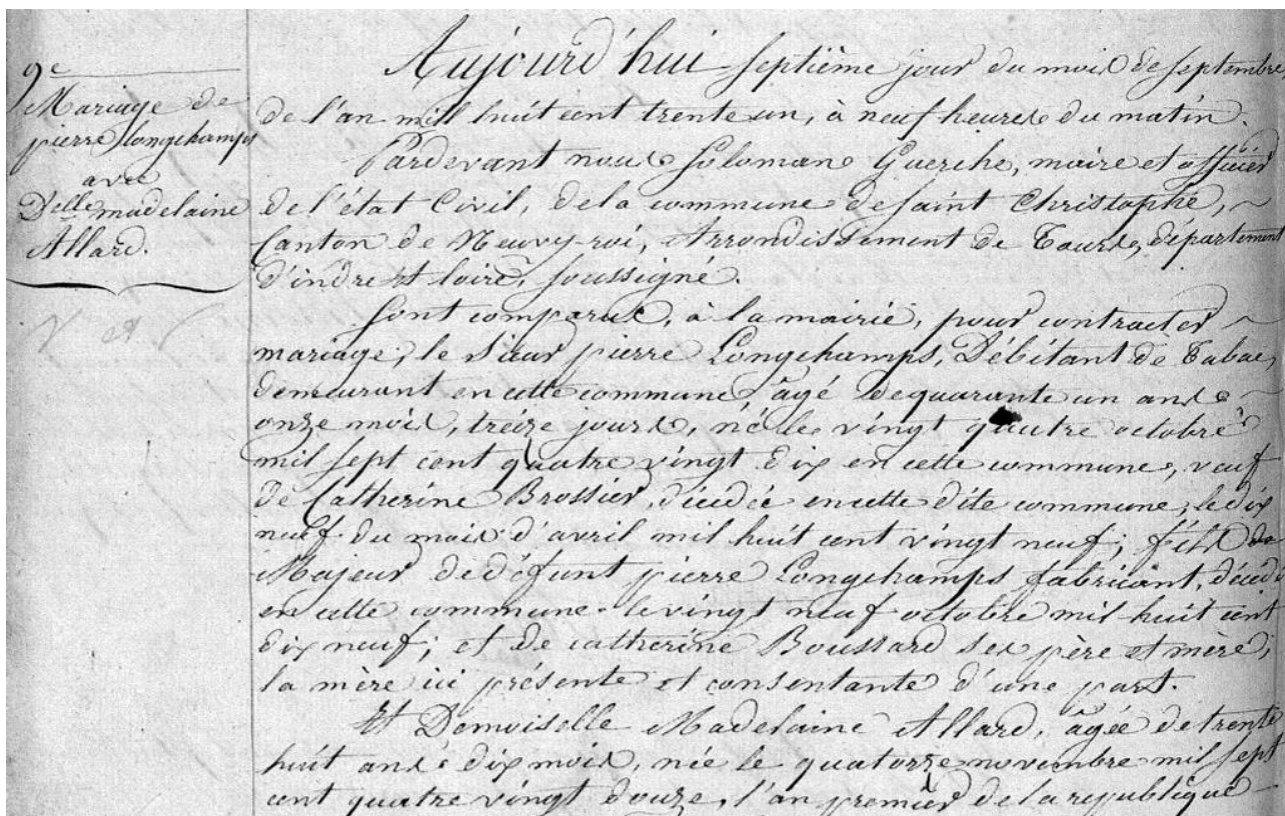 9e
Mariage de
pierre Longchamps
avec
Delle madelaine
Allard.
Aujourd'hui septième jour du mois de septembre
de l'an mill huit cent trente un, à neuf heures du matin.
Pardevant nous Solomane Guerche, maire et officier
de l'état Civil, de la commune de saint Christophe,
Canton de Neuvy-roi, Arrondissement de Tours, département
d'indre et loire, soussigné.
Sont comparus, à la mairie, pour contracter
mariage, le sieur pierre Longchamps, Débitant de Tabac,
demeurant en cette commune âgé de quarante un ans
onze mois, treize jours, né le vingt quatre octobre
mil sept cent quatre vingt dix en cette commune, veuf
de Catherine Brossier, décedée en cette dite commune, le dix
neuf du mois d'avril mil huit cent vingt neuf; fils
Majeur de défunt pierre Longchamps fabricant, décedé
en cette commune le vingt neuf octobre mil huit cent
dix neuf; et de catherine Boussard ses père et mère,
la mère ici présente et consentante d'une part.
Et Demoiselle Madelaine Allard, âgée de trente
huit ans dix mois, née le quatorze novembre mil sept
cent quatre vingt douze, l'an premier de la republique